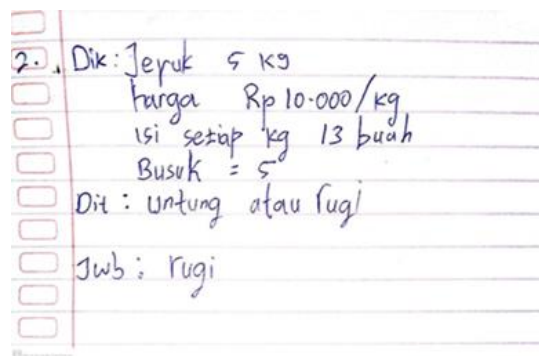 2. Dik: Jeruk 5 kg
harga Rp 10.000/kg
isi setiap kg 13 buah
Busuk = 5
Dit : untung atau rugi
Jwb : rugi